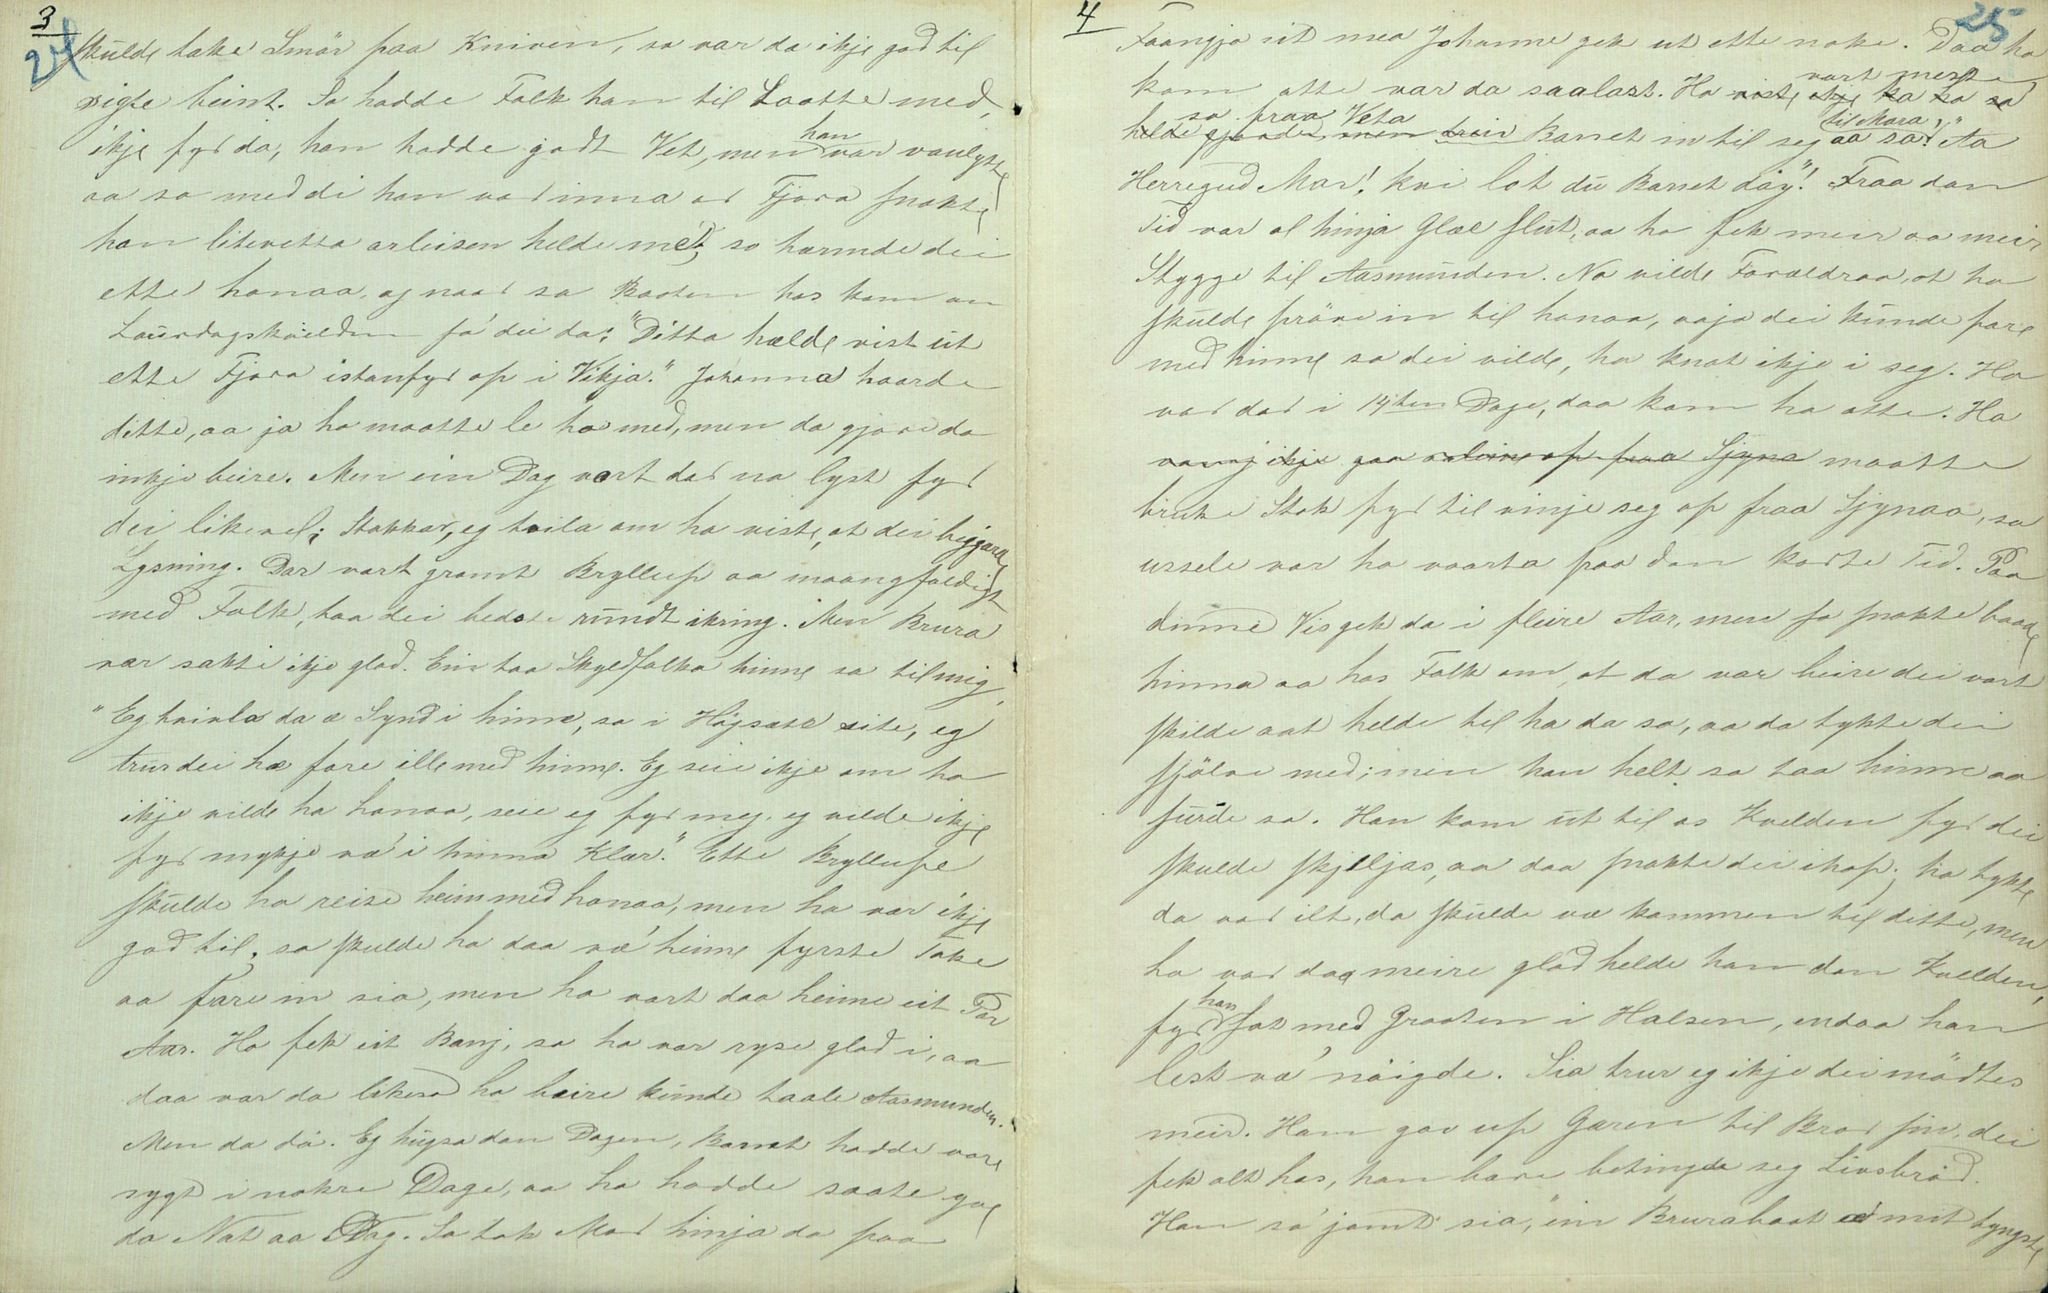 3
24
skulde take Smör paa Kniven, so var da ikje god til
rigte beint. So hadde Folk han til Laatte med,
ikje fyr da, han hadde godt Vet, men han var vanlygte
aa so med di han var inna ar Fjora snakte
han litevetta arleisen helde med, so hermde dei
ette honaa, og naar so Baaten has kom om
Laurdagskvelden sa' dei da: "Ditta hælde vist ut
ette Fjora istanfyr op i Vikja." Johanna haarde
ditte, aa ja ho maatte le ho med, men da gjore da
inkje beire. Men ein Dag vart dar no lyst fyr
dei likevel; Stakkar, eg tvila om ho viste, at dei begjæra
Lysning. Dar vart gramt Bryllup aa maangfaldigt
med Folk, taa dei bedste rundt ikring. Men Brura
var sakti ikje glad. Ein taa Skyldfolka hinne sa til mig,
"Eg tvivla da æ Synd i hinne, so i Højsæte site, eg
trur dei hæ fare ille med hinne. Eg seie ikje om ho
ikje vilde ha honaa, seie eg fyr meg, eg vilde ikje
fyr mykje væ' i hinna Klær." Ette Bryllupe
skulde ho reise heim med honaa, men ho var ikje
god til, so skulde ho daa væ' heime fyrste Take
aa fare in sia, men ho vart daa heime eit Par
Aar. Ho fek eit Banj, so ho var ryse glad i, aa
daa var da likeso ho beire kunde taale Aasmunden.
Men da dö. Eg hugsa dan Dagen, Barnet hadde vore
sygt i nokre Dage, aa ho hadde saate yve
da Nat aa Dag. So tok Mor hinja da paa
4
25
Faangja sit mea Johanne gek ut ette noke. Daa ho
kom atte var da saalast. Ho viste ikje ka ho sa vart mest
helde gjorde, men so fraa Veta treiv Barnet in til seg aa sa til Mora: "Aa
Herregud Mor! kvi lot du Barnet döy"! Fraa dan
Tid var al hinja Glæe slut, aa ho fek meir aa meir
Stygge til Aasmunden. No vilde Foreldraa, at ho
skulde pröve in til honaa, aaja dei kunde fare
med hinne so dei vilde, ho knat ikje i seg. Ho
var dar i 14 ten Dage, daa kom ho atte. Ho
vannj ikje gaa aleine op fraa Sjyna maatte
bruke Stok fyr til vinje seg op fraa Sjynaa, so
ussele var ho vaarta paa dan korte Tid. Paa
dinne Vis gek da i fleire Aar, men so snakte baade
hinna aa has Folk om, at da var beire dei vart
skilde aat helde til ha da so, aa da tykte dei
sjölve med; men han helt so taa hinne aa
surde so. Han kom ut til os Kvelden fyr dei
skulde skjiljas, aa daa snakte dei ihop; ho tykte
da var ilt, da skulde væ kommen til ditte, men
ho var daa meire glad helde han dan Kvelden,
fyr han sat med Graaten i Halsen, endaa han
lest væ' nöigde. Sia trur eg ikje dei mödtes
meir. Han gav up Garen til Bror sin, dei
fek alt has, han bare betingde seg Livsbröd.
Han sa' jamt sia, "ein Brurabaat æ mit tyngste